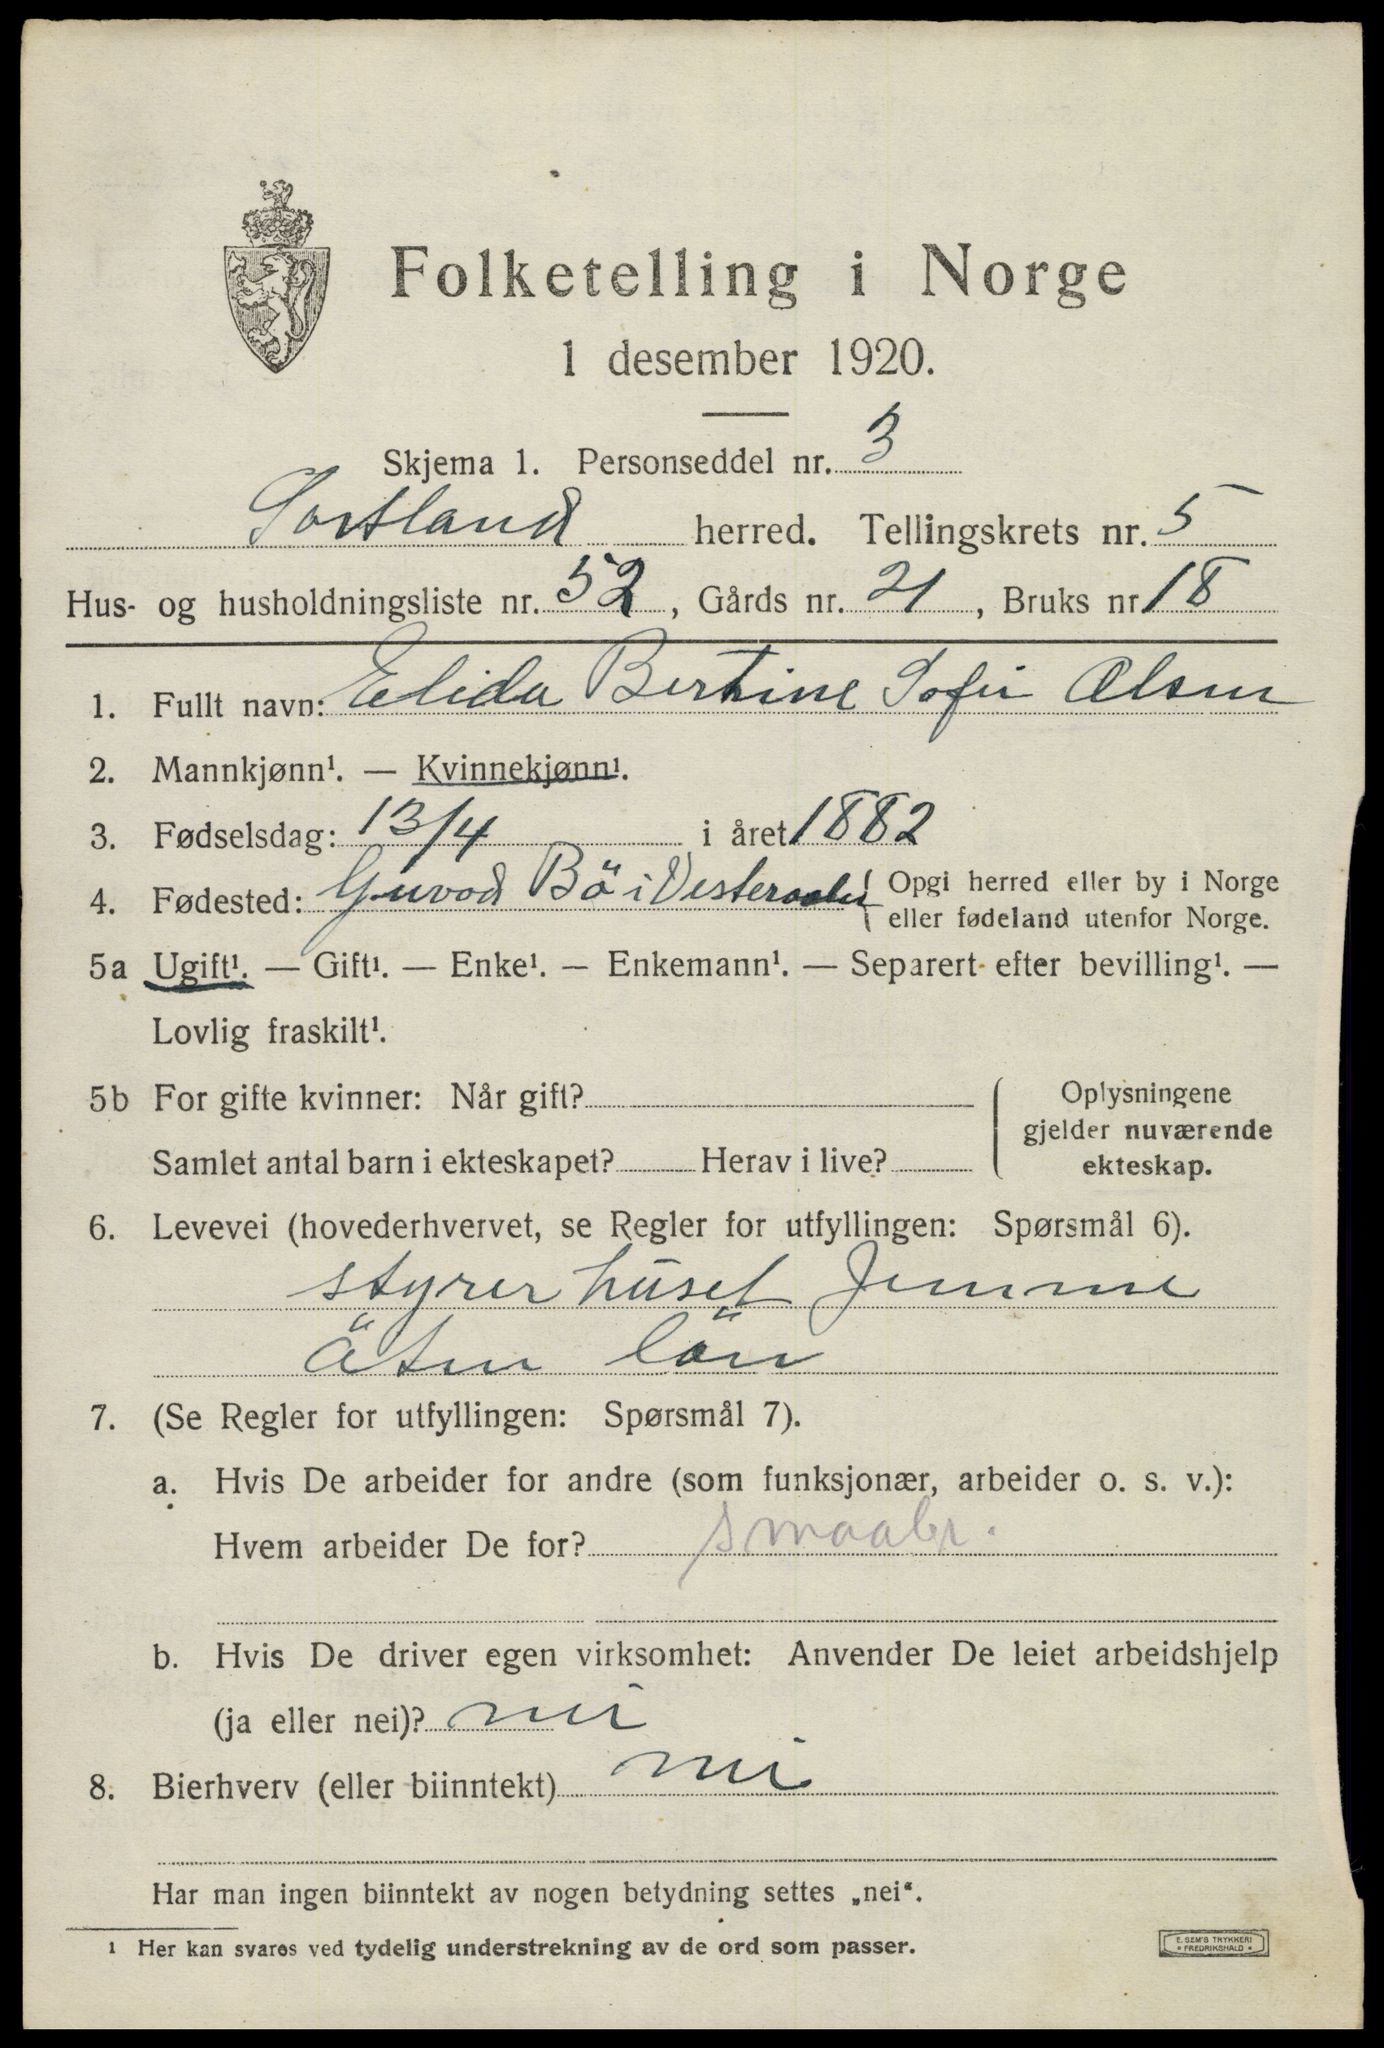 Folketelling i Norge
1 desember 1920.
Skjema 1. Personseddel nr. 3
Sortland herred. Tellingskrets nr. 5
Hus- og husholdningsliste nr. 52, Gårds nr. 21, Bruks nr 18
1. Fullt navn: Elida Bertine Sofie Olsen
2. Mannkjønn¹. — Kvinnekjønn¹.
3. Fødselsdag: 13/4 i året 1882
4. Fødested: Guvod Bö i Vesteraalen { Opgi herred eller by i Norge
eller fødeland utenfor Norge.
5a Ugift¹. — Gift¹. — Enke¹. — Enkemann¹. — Separert efter bevilling¹. —
Lovlig fraskilt¹.
5b For gifte kvinner: Når gift?
Samlet antal barn i ekteskapet? Herav i live?
Oplysningene
gjelder nuværende
ekteskap.
6. Levevei (hovederhvervet, se Regler for utfyllingen: Spørsmål 6).
styrer huset Jemme
uten lön
7. (Se Regler for utfyllingen: Spørsmål 7).
a. Hvis De arbeider for andre (som funksjonær, arbeider o. s. v.):
Hvem arbeider De for? smaabr.
b. Hvis De driver egen virksomhet: Anvender De leiet arbeidshjelp
(ja eller nei)? nei
8. Bierhverv (eller biinntekt) nei
Har man ingen biinntekt av nogen betydning settes „nei“.
¹ Her kan svares ved tydelig understrekning av de ord som passer.
E. SEM'S TRYKKERI
• FREDRIKSHALD •